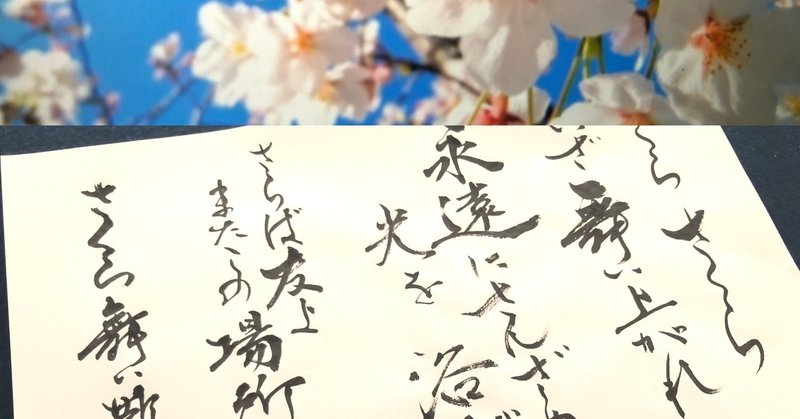 くら さくら
いざ舞い上がれ
永遠にさんざ
光を浴
さらば友よ
またこの場所
さくら舞い散